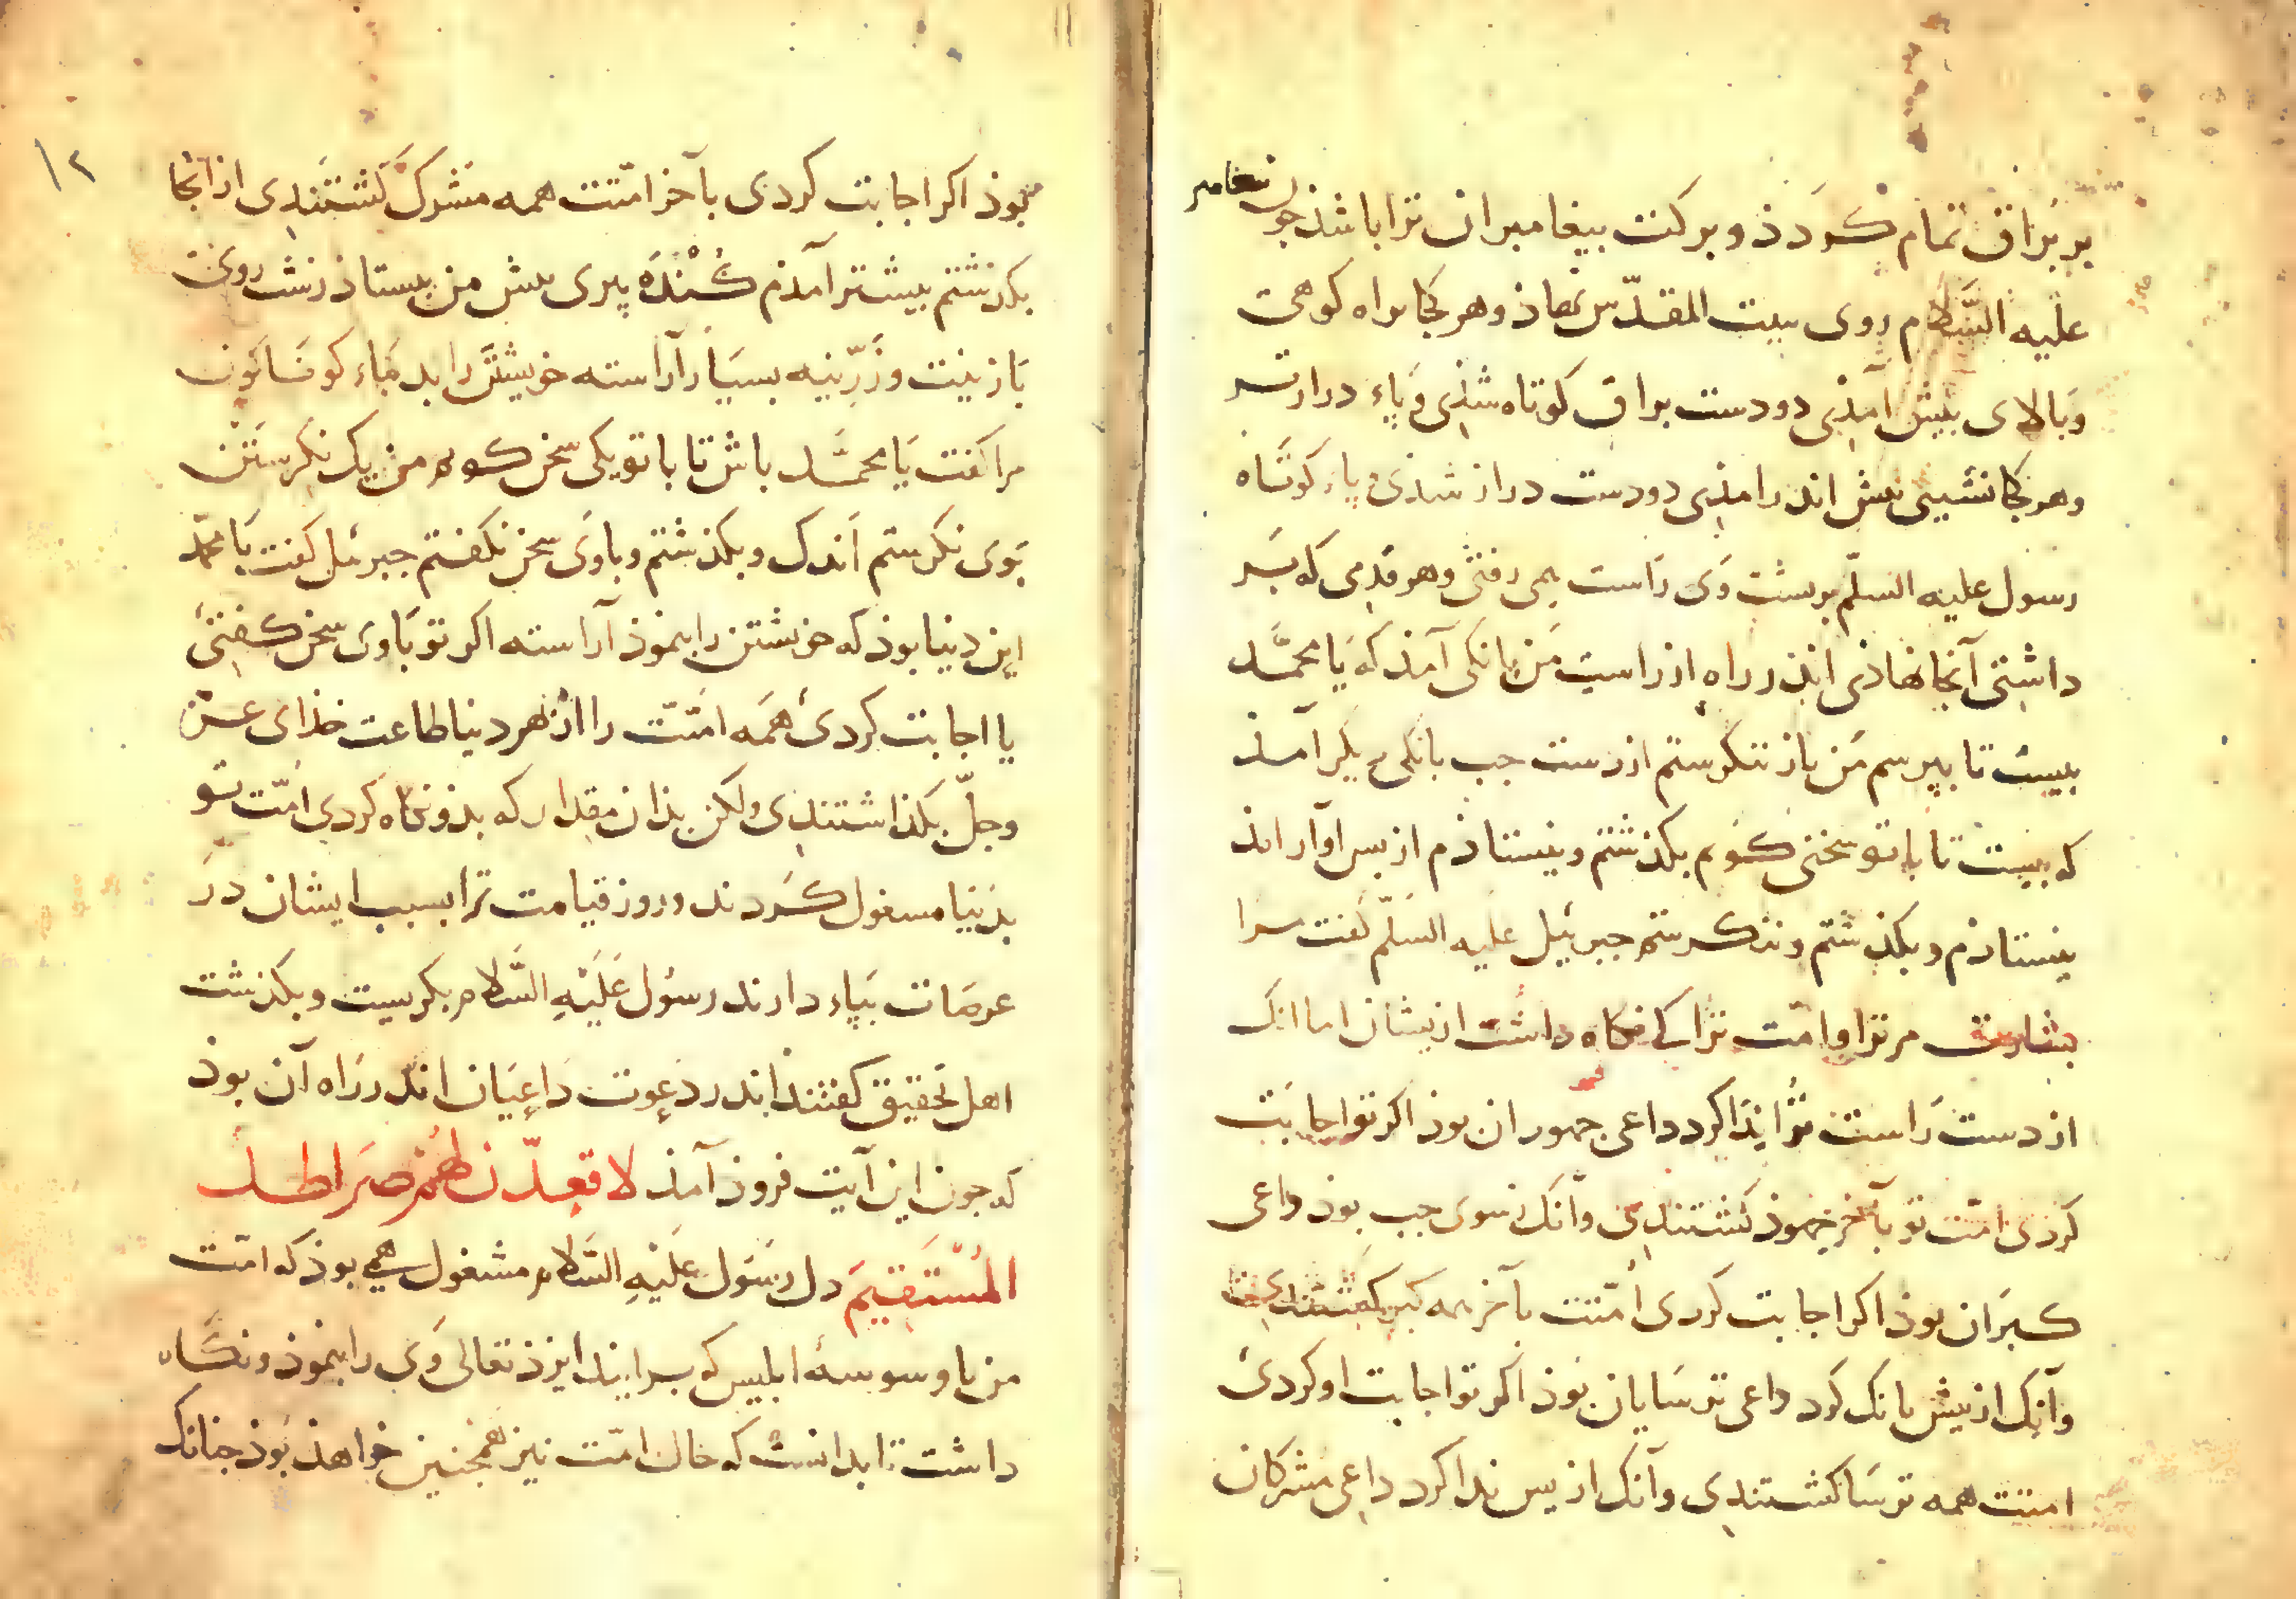 بر براق تمام کردذ و برکت بیغامبران ترا باشذ جون بیغامبر
علیه السَّلام روی ببیت المقدّس نهاذ و هر کجا براه کوهی
و بالای بیش آمذی دو دست براق کوتاه شذی و پاء درازتر
و هر کجا نشیبی بیش اندر امذی دو دست دراز شذی و پاء کوتاه
رسول علیه السلّم بر بشت وی راست همی رفتی و هر قدمی که بسر
داشتی آنجا نهاذی اندر راه از راست من بانکی آمذ که یا محمّد
ببیست تا ببرسم من باز ننکرستم از دست جب بانکی دیکر آمذ
که ببیست تا با تو سخنی کویم بکذشتم و نیستاذم از بس آواز امذ
نیستاذم و بکذشتم و ننکرستم جبرئیل علیه السلّم کفت مرا
بشارت مر ترا و امّت ترا کی نکاه داشت ازیشان اما انک
از دست راست ترا ندا کرد داعی جهوران بوذ اکر تو اجابت
کردی امّت تو بآخر جهوذ کشتندی و آنک ز سوی جب بوذ داعی
کبران بوذ اکر اجابت کردی امّتت بآخر همه کبر کشتندی
و آنک از بیش بانک کرد داعی ترسایان بوذ اکر تو اجابت او کردی
امتت همه ترسا کشتندی و آنک از پس ندا کرد داعی مشرکان
۱۲
بوذ اکر اجابت کردی بآخر امّتت همه مشرک کشتندی از انجا
بکذشتم بیشتر آمذم کُنْدَه پیری بیش من بیستاذ زشت روی
با زینت و زرّینه بسیار آراسته خویشتن را بد
مرا کفت یا محمَّد باش تا با تو یکی سخن کویم من یک نکرستن
بوی نکرستم اندک و بکذشتم و با وی سخن نکفتم جبرئیل کفت یا محمّد
این دنیا بوذ که خویشتن را بنموذ آراسته اکر تو با وی سخن کفتی
یا اجابت کردی همه امّتت را از بهر دنیا طاعت خذای عزّ
و جلّ بکذاشتندی و لکن بذان مقدار که بذو نکاه کردی امّت تو
بدنیا مسغول کردند و روز قیامت ترا بسبب ایشان در
عرصات بپاء دارند رسول عَلَیْهِ السَّلام بکریست و بکذشت
اهل تحقیق کفتند اندر دعوت داعیان اندر راه آن بوذ
که جون این آیت فروذ آمذ لاقعدّن لهُمْ صِرَاطك
المُسْتَقِيمَ دل رسول عَلَیْهِ السَّلام مشغول همی بوذ که امّت
من با وسوسهٔ ابلیس که برایند ایزذ تعالی وی را بنموذ و نکاه
داشت تا بدانست که حال امّت نیز همجنین خواهذ بوذ جنانک